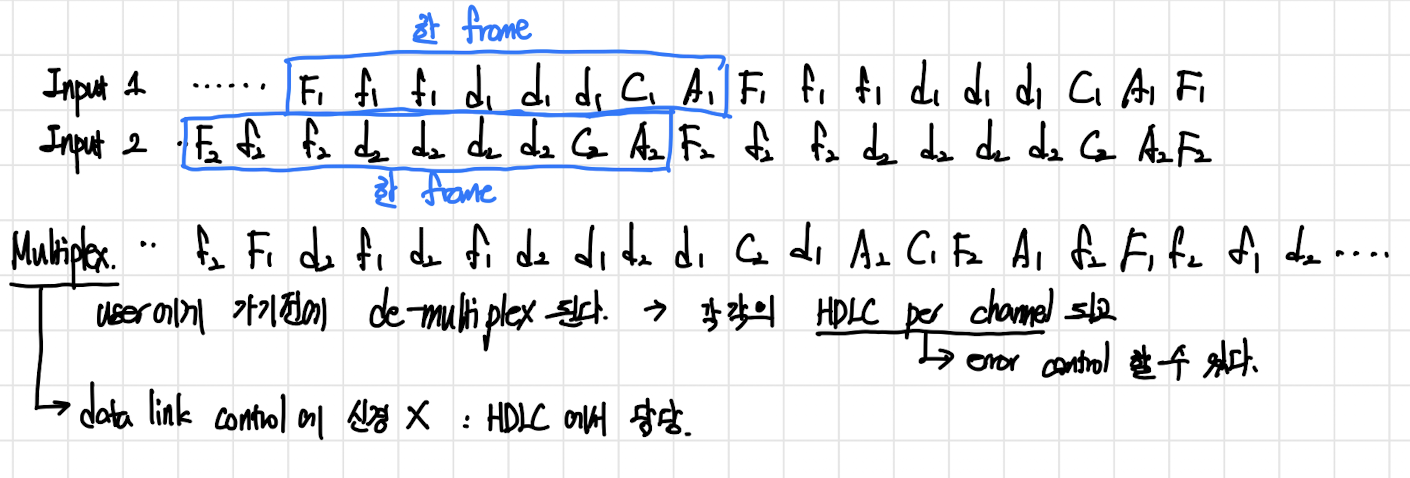 한 frame
Input 1 ······ F₁ f₁ f₁ d₁ d₁ d₁ C₁ A₁ F₁ f₁ f₁ d₁ d₁ d₁ C₁ A₁ F₁
Input 2 · F₂ f₂ f₂ d₂ d₂ d₂ d₂ C₂ A₂ F₂ f₂ f₂ d₂ d₂ d₂ d₂ C₂ A₂ F₂
한 frame
Multiplex. ·· f₂ F₁ d₂ f₁ d₂ f₁ d₂ d₁ d₂ d₁ C₂ d₁ A₂ C₁ F₂ A₁ f₂ F₁ f₂ f₁ d₂ ····
user에게 가기전에 de-multiplex 된다. → 각각의 HDLC per channel 되고
↳ error control 할 수 있다.
↳ data link control에 신경 X : HDLC 에서 담당.